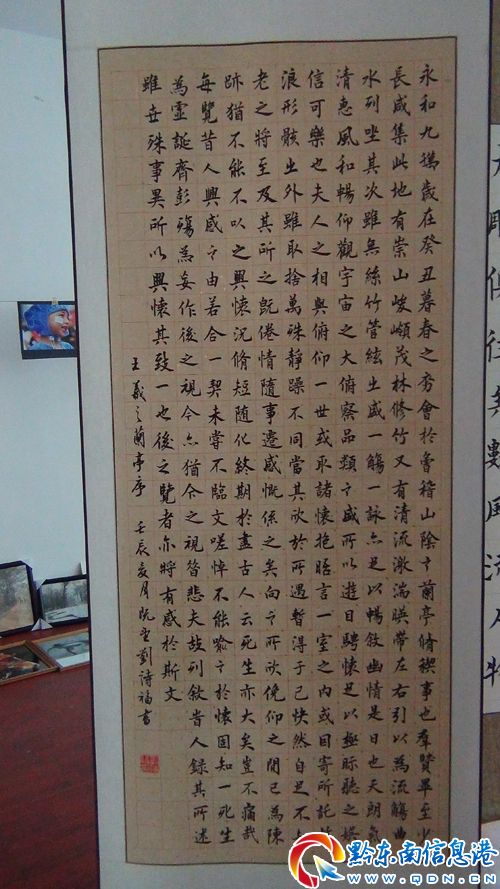 俱往矣數風流人物
永和九年歲在癸丑暮春之初會於會稽山陰之蘭亭脩禊事也羣賢畢至少
長咸集此地有崇山峻嶺茂林修竹又有清流激湍暎帶左右引以為流觴曲
水列坐其次雖無絲竹管絃之盛一觴一詠亦足以暢敘幽情是日也天朗氣
清惠風和暢仰觀宇宙之大俯察品類之盛所以遊目騁懷足以極眎聽之娛
信可樂也夫人之相與俯仰一世或取諸懷抱晤言一室之內或因寄所託
浪形骸之外雖取捨萬殊靜躁不同當其欣於所遇暫得于己快然自足不
老之將至及其所之既倦情隨事遷感慨係之矣向之所欣俛仰之間已為陳
跡猶不能不以之興懷況脩短隨化終期於盡古人云死生亦大矣豈不痛哉
每覽昔人興感之由若合一契未嘗不臨文嗟悼不能喻之於懷固知一死生
為虛誕齊彭殤為妄作後之視今亦猶今之視昔悲夫故列敘昔人錄其所述
雖世殊事異所以興懷其致一也後之覽者亦將有感於斯文
王羲之蘭亭序 壬辰夏月 劉詩福書
黔东南信息港
WWW.QDN.CN